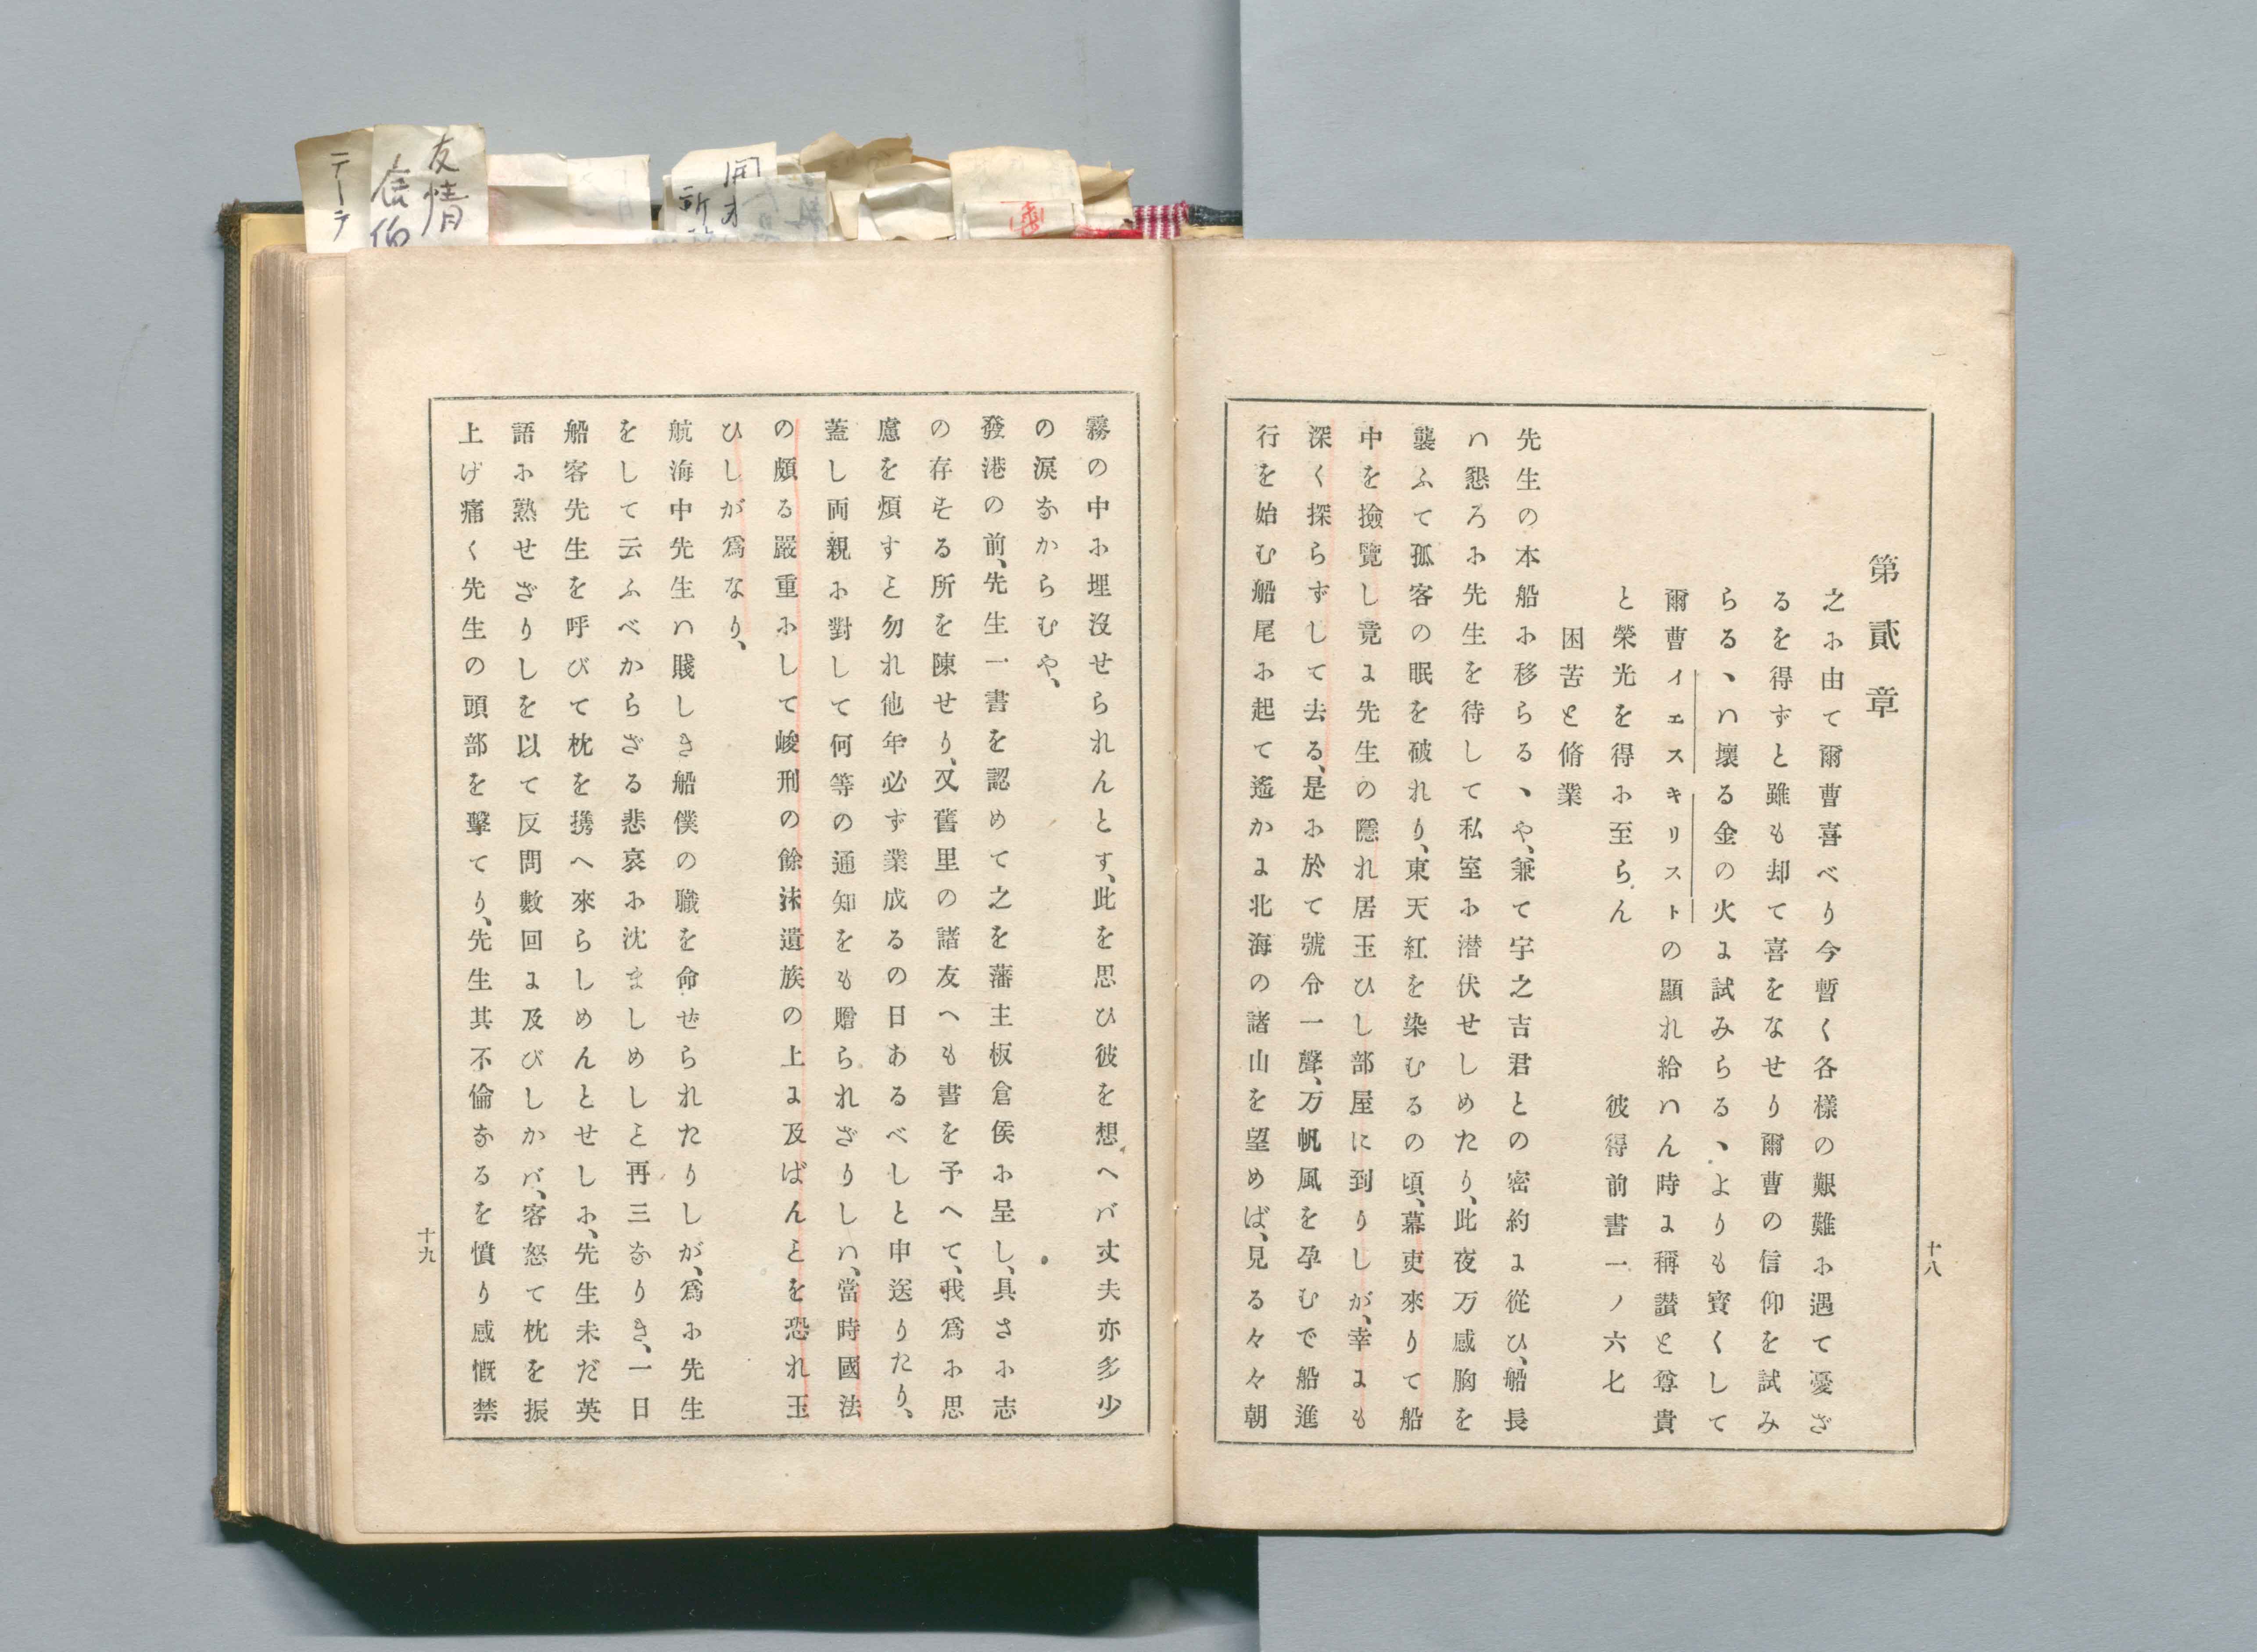 第貳章
之ふ由て爾曹喜べり今暫く各樣の艱難ふ遇て憂ざ
るを得ずと雖も却て喜をなせり爾曹の信仰を試み
らるヽハ壞る金の火に試みらるヽよりも寳くして
爾曹イエスキリストの顯れ給ハん時に稱讃と尊貴
と榮光を得ふ至らん　彼得前書一ノ六七
困苦と脩業
先生の本船ふ移らるヽや、兼て宇之吉君との密約に從ひ、船長
ハ懇ろふ先生を待して私室ふ潜伏せしめたり、此夜万感胸を
襲ふて孤客の眠を破れり、東天紅を染むるの頃、幕吏來りて船
中を撿覽し竟に先生の隱れ居玉ひし部屋に到りしが、幸にも
深く探らずして去る、是ふ於て號令一聲、万帆風を孕むで船進
行を始む船尾ふ起て遙かに北海の諸山を望めば、見る々々朝
十八
霧の中ふ埋沒せられんとす、此を思ひ彼を想へバ丈夫亦多少
の涙なからむや、
發港の前、先生一書を認めて之を藩主板倉侯ふ呈し、具さふ志
の存する所を陳せり、又舊里の諸友へも書を予へて、我爲ふ思
慮を煩すこと勿れ他年必ず業成るの日あるべしと申送りたり、
蓋し両親ふ對して何等の通知をも贈られざりしハ、當時國法
の頗る嚴重ふして峻刑の餘沫遺族の上に及ばんことを恐れ玉
ひしが爲なり、
航海中先生ハ賤しき船僕の職を命ぜられたりしが、爲ふ先生
をして云ふべからざる悲哀ふ沈ましめしこと再三なりき、一日
船客先生を呼びて枕を携へ來らしめんとせしふ、先生未だ英
語ふ熟せざりしを以て反問數回に及びしかバ、客怒て枕を振
上げ痛く先生の頭部を擊てり、先生其不倫なるを憤り感慨禁
十九
テーラ
友情
開